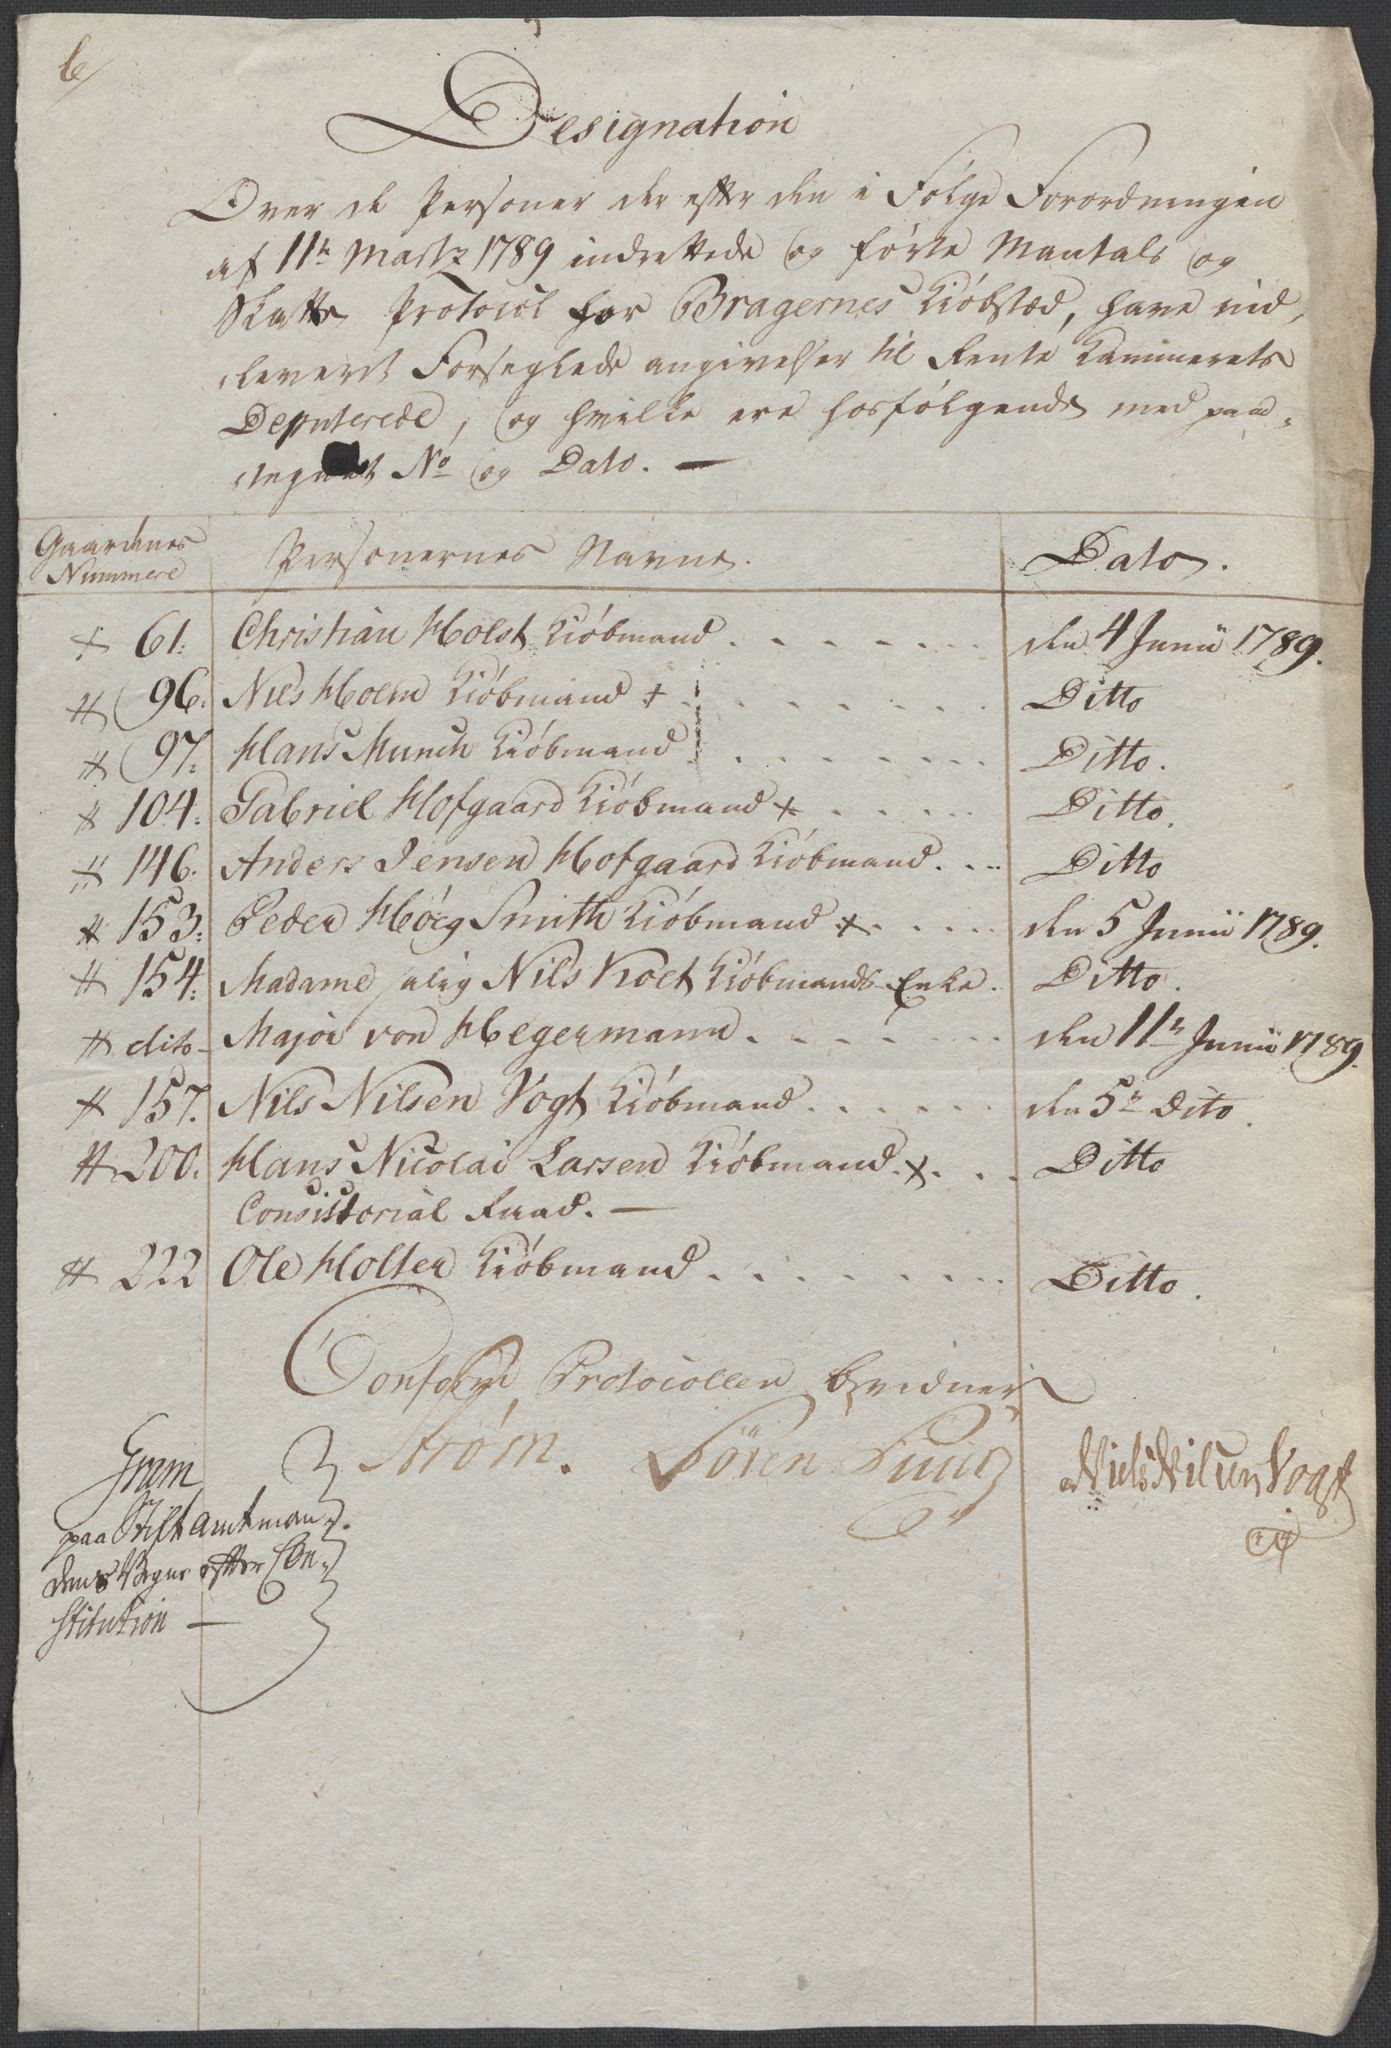 Designation
Over de Personer der efter den i Følge Forordningen
af 11te Martz 1789 indrettede og førte Mantals og
Skatte Protocol for Bragernes Kiøbstæd, have ind,
leveret Forseglede angivelser til Rente Kammerets
Deputerede, og hvilke ere hosfølgende med paa,
tegnet No og Dato. —
Gaardenes Nummere Personernes Navne. Dato.
+ 61: Christian Holst Kiøbmand . . . . . . . den 4 Junii 1789.
# 96. Nils Holm Kiøbmand + . . . . . . . Ditto
# 97. Hans Munch Kiøbmand . . . . . . . Ditto.
# 104. Gabriel Hofgaard Kiøbmand + . . . . Ditto.
# 146. Anders Jensen Hofgaard Kiøbmand . . . Ditto
# 153: Peder Høeg Smith Kiøbmand + . . . . den 5 Junii 1789.
# 154: Madame salig Nils Koet Kiøbmands Enke . Ditto.
# dito - Major von Hegermann . . . . . . . den 11te Junii 1789.
+ 157. Nils Nilsen Vogt Kiøbmand . . . . . . den 5te Dito.
# 200. Hans Nicolai Larsen Kiøbmand + . . . Ditto
Consistorial Raad. —
# 222 Ole Holter Kiøbmand . . . . . . . . Ditto.
Conform Protocollen bevidner
Strøm. Sören Juul Niels Nilsen Vogt
Gram
paa Stiftamtman,
dens Vegne efter Con,
stitution —